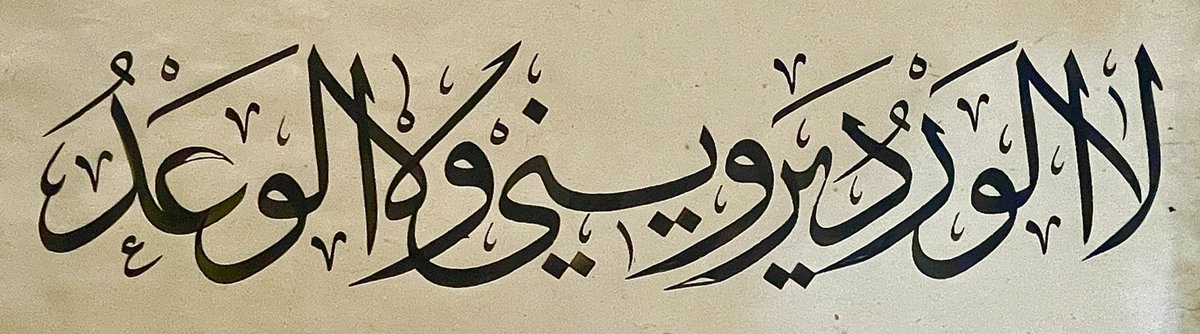 لا الوَرْدُ يرويني وَلا الوَعْدُ